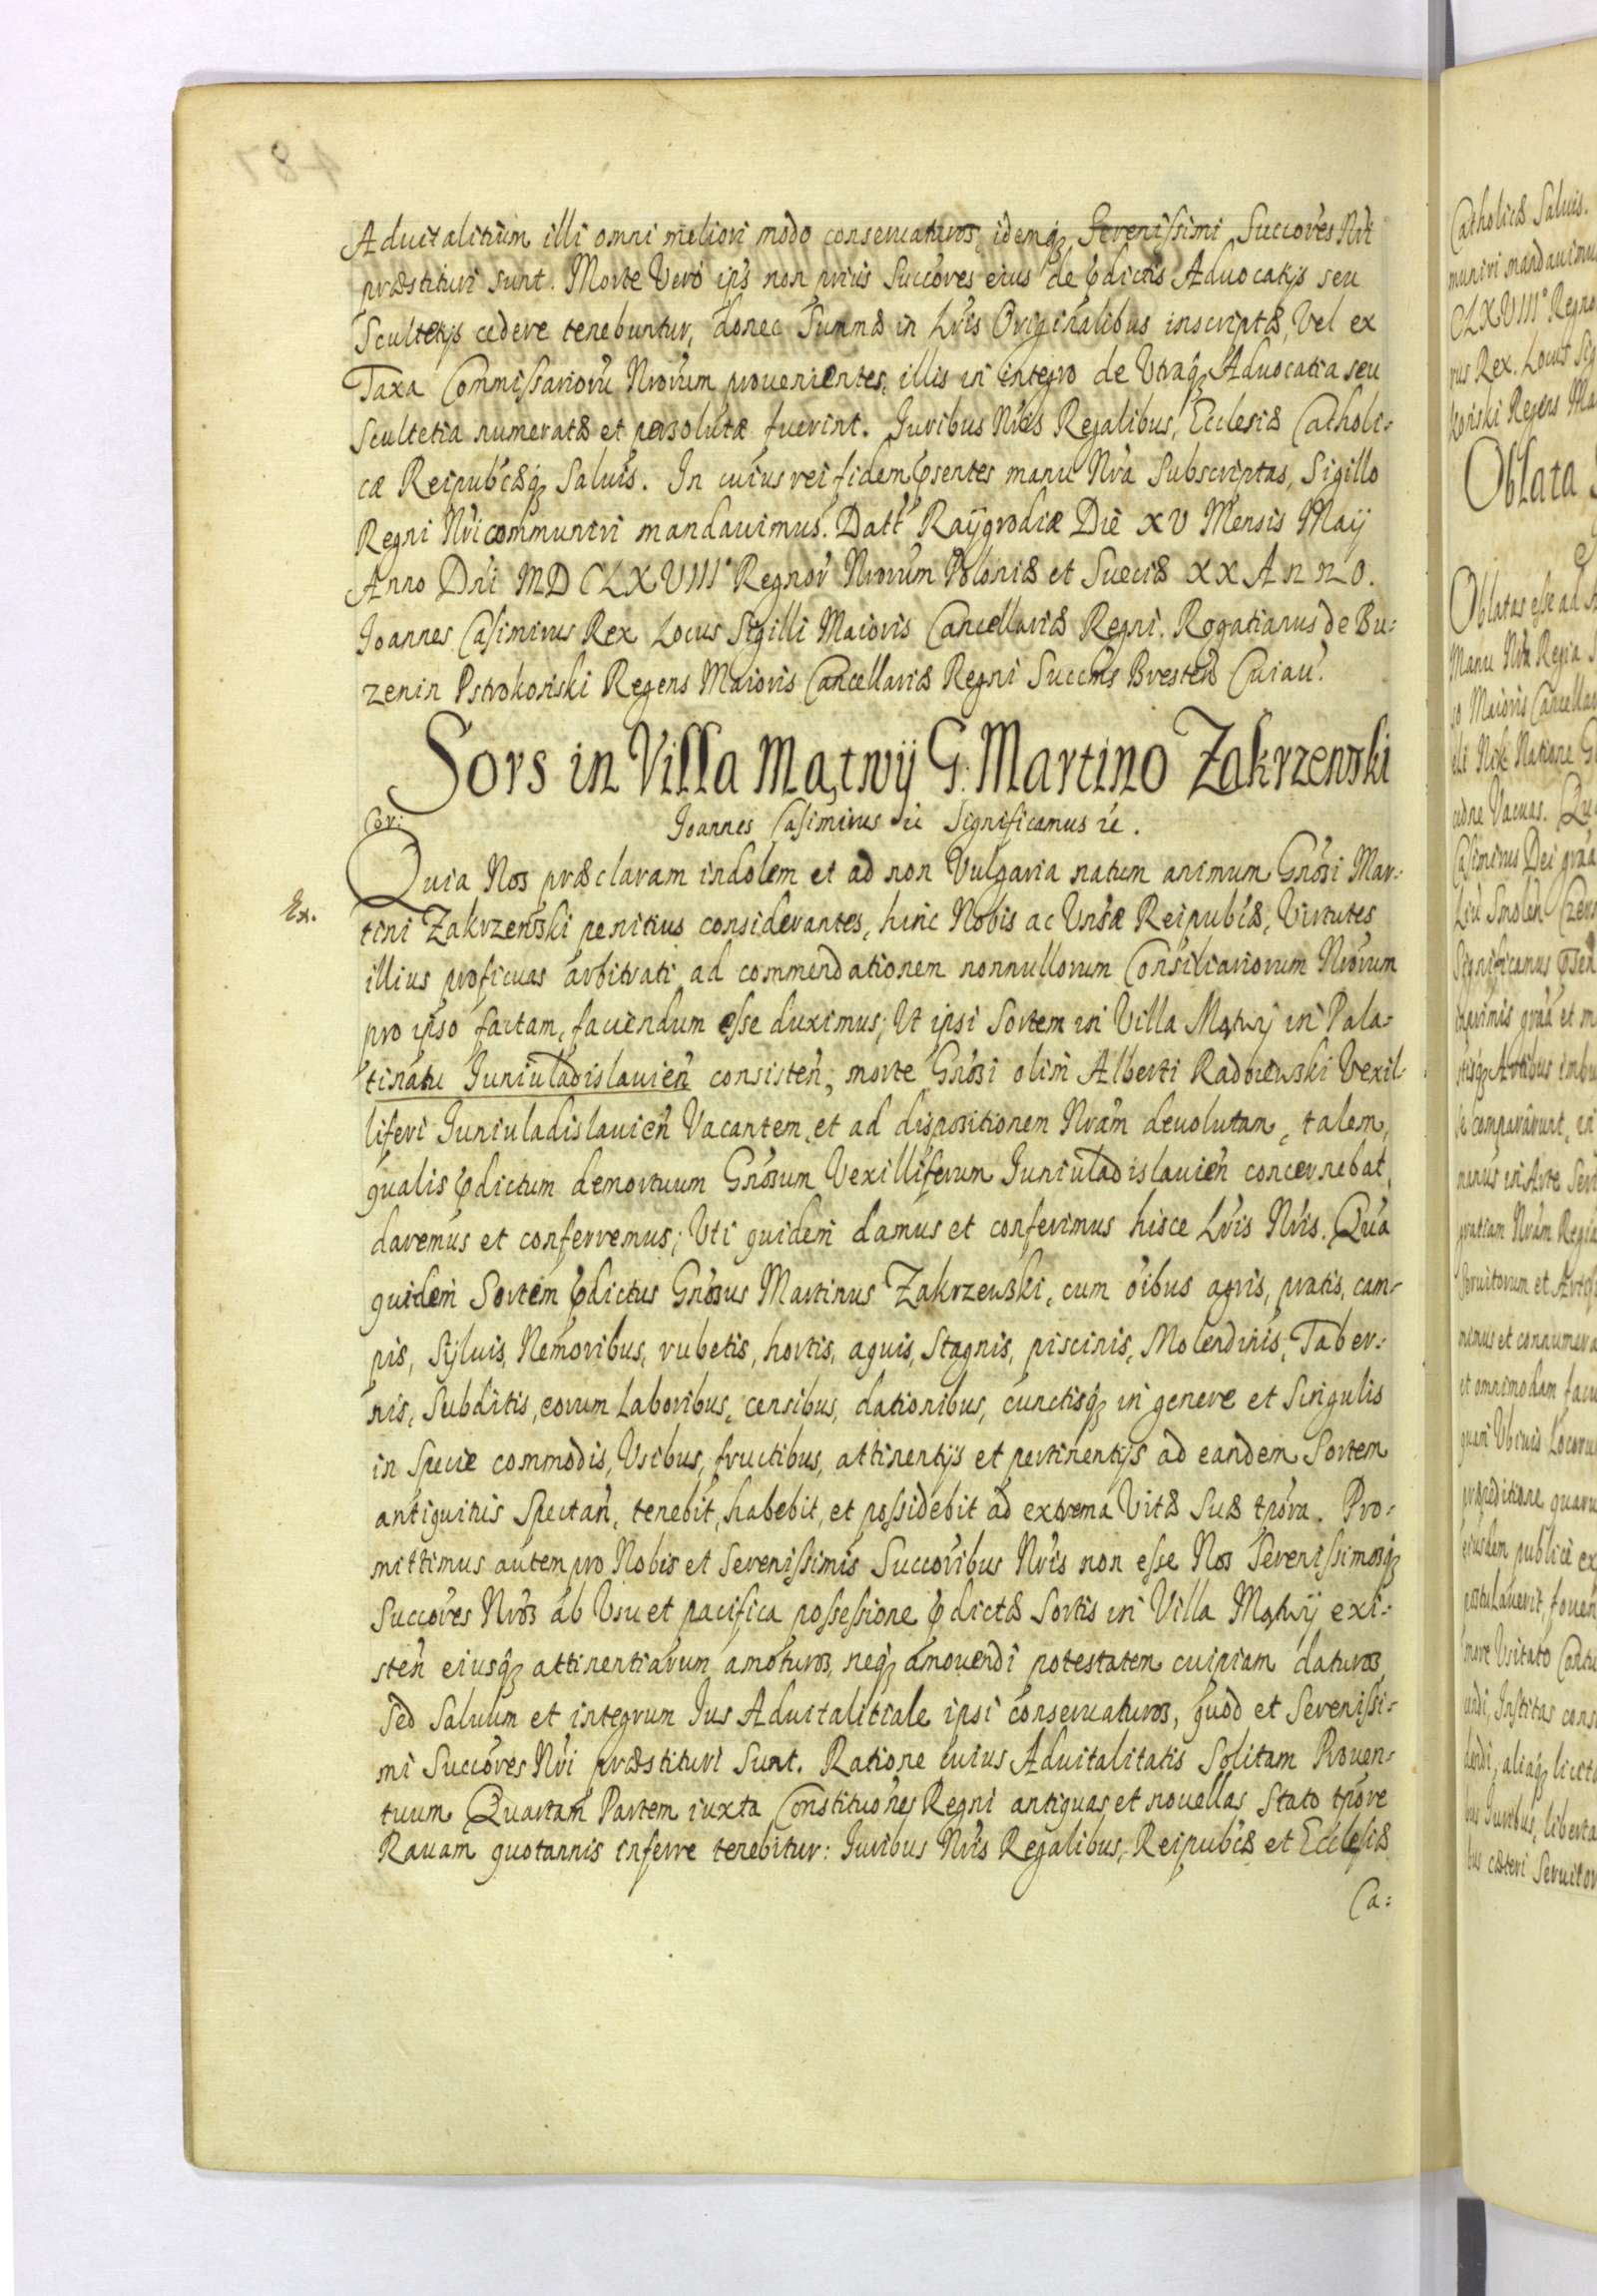 Aduitalitium illi omni meliori modo conseruaturos, idemq; Serenissimi Succores Nri
præstituri sunt. Morte Vero ips non prius Succores eius de pdictis Aduocatijs seu
Scultetijs cedere tenebuntur, donec Summæ in Lris Originalibus inscriptæ, Vel ex
Taxa Commissarioru Nrorum prouenientes, illis in integro de Utraq; Aduocatia seu
Scultetia numeratæ et persolutæ fuerint. Iuribus Nris Regalibus, Ecclesiæ Catholi=
cæ Reipubcæq; Saluis. In cuius rei fidem psentes manu Nra Subscriptas, Sigillo
Regni Nri communiri mandauimus. Datt Raÿgrodiæ Die XV Mensis Maij
Anno Dni MDCLXVIII° Regnor Nrorum Poloniæ et Sueciæ XX Anno.
Joannes Casimirus Rex Locus Sigilli Maioris Cancellariæ Regni. Rogatianus de Bu=
zenin Pstrokoński Regens Maioris Cancellariæ Regni Succus Bresteñ Cuiau.
Sors in Villa Mątwij G. Martino Zakrzewski
Cor:
Joannes Casimirus etc Significamus etc.
Quia Nos præclaram indolem et ad non Vulgaria natum animum Gnosi Mar=
Ex.
tini Zakrzewski penitius considerantes, hinc Nobis ac Unsæ Reipublæ, Virtutes
illius proficuas arbitrati ad commendationem nonnullorum Consiliariorum Nrorum
pro ipso factam, faciendum esse duximus; Ut ipsi Sortem in Villa Mątwij in Pala=
tinatu Juniuladislauieñ consisteñ, morte Gnosi olim Alberti Radoiewski Vexil=
liferi Juniuladislauieñ Vacantem, et ad dispositionem Nram deuolutam, talem,
qualis pdictum demortuum Gnosum Vexilliferum Juniuladislauieñ concernebat,
daremus et conferremus; Uti quidem damus et conferimus hisce Lris Nris. Qua
quidem Sortem pdictus Gnosus Martinus Zakrzewski, cum oibus agris, pratis, cam=
pis, Sÿluis, Nemoribus, rubetis, hortis, aquis, Stagnis, piscinis, Molendinis, Taber=
nis, Subditis, eorum Laboribus, censibus, dationibus, cunctisq; in genere et Singulis
in Specie commodis, Usibus, fructibus, attinentijs et pertinentijs ad eandem Sortem
antiquitus Spectañ, tenebit, habebit, et possidebit ad extrema Vitæ Suæ tpora. Pro=
mittimus autem pro Nobis et Serenissimis Succoribus Nris non esse Nos Serenissimosq;
Succores Nros ab Usu et pacifica possessione pdictæ Sortis in Villa Mątwij exi=
steñ eiusq; attinentiarum amoturos, neq; amouendi potestatem cuipiam daturos,
Sed Saluum et integrum Jus Aduitalitiale ipsi conseruaturos, quod et Serenissi=
mi Succores Nri præstituri Sunt. Ratione cuius Aduitalitatis Solitam Prouen=
tuum Quartam Partem iuxta Constitutiones Regni antiquas et nouellas Stato tpore
Rauam quotannis inferre tenebitur: Iuribus Nris Regalibus, Reipubcæ et Ecclesiæ
Ca=
487
Catholicæ Saluis.
muniri mandauimus
CLXVIII° Regno
rus Rex. Locus Sig
koński Regens Ma
Oblata
Oblatas esse ad
Manu Nra Regia S
so Maioris Cancellar
Casimirus Dei gra
Significamus psen